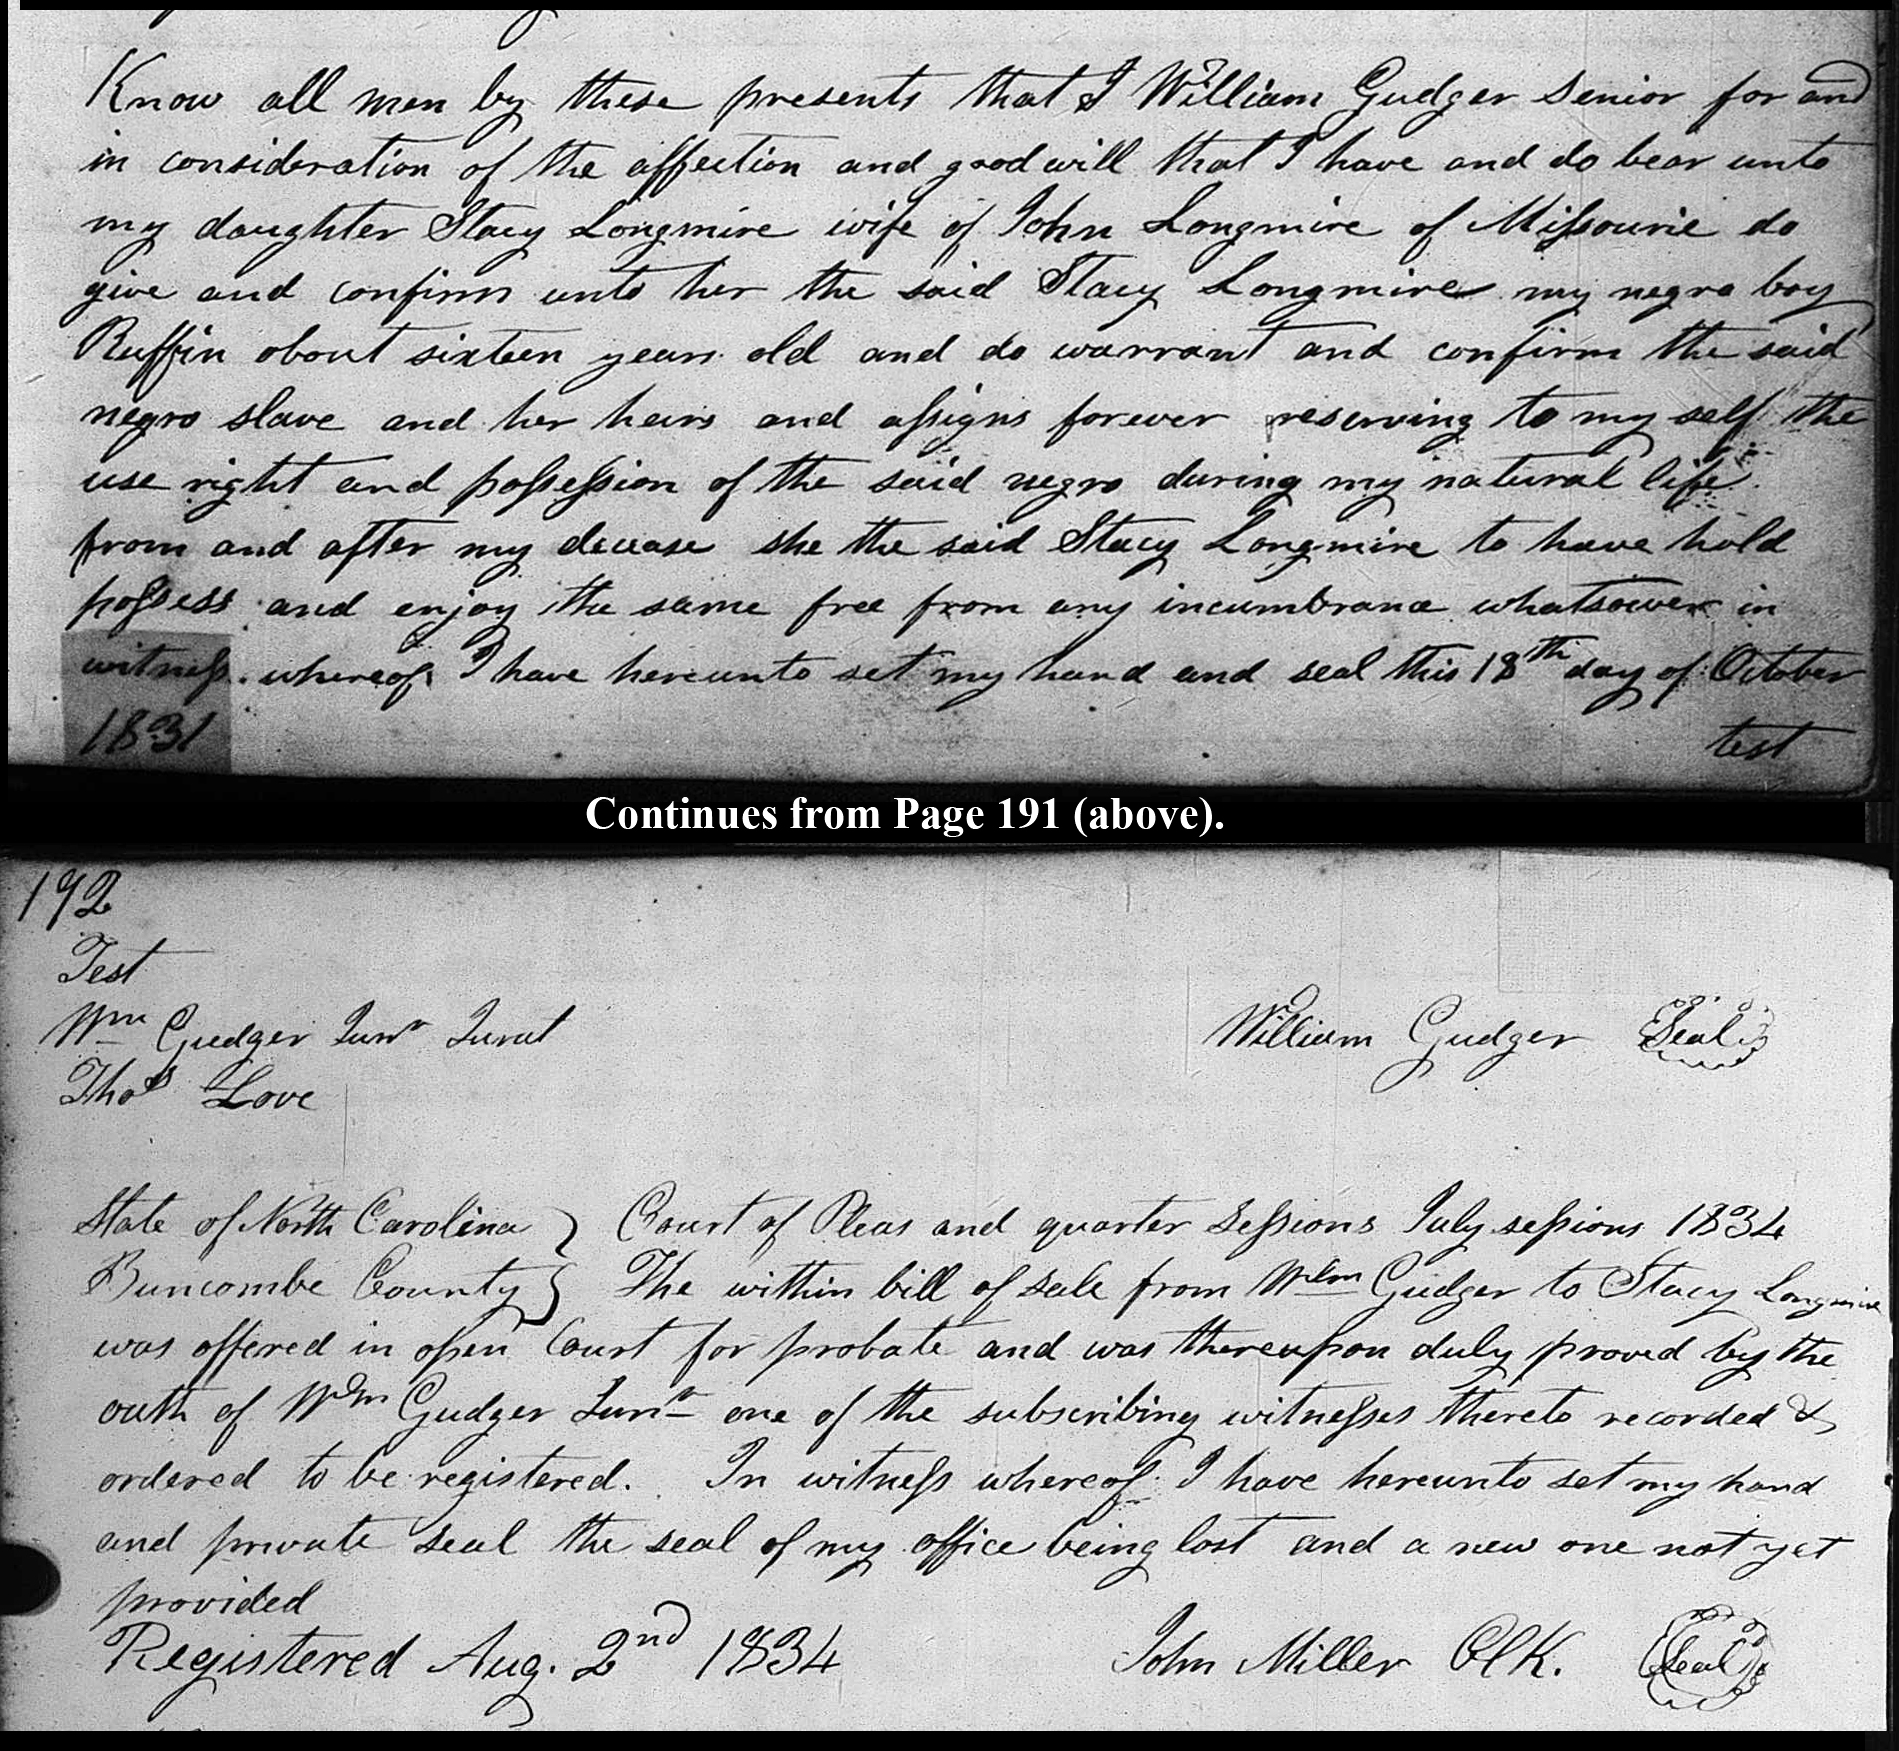 Know all men by these presents that I William Gudger Senior for and
in consideration of the affection and good will that I have and do bear unto
my daughter Stacy Longmire wife of John Longmire of Missourie do
give and confirm unto her the said Stacy Longmire my negro boy
Ruffin about sixteen years old and do warrant and confirm the said
negro slave and her heirs and assigns forever reserving to my self the
use right and possession of the said negro during my natural life
from and after my decease she the said Stacy Longmire to have hold
possess and enjoy the same free from any incumbrance whatsoever in
witness whereof I have hereunto set my hand and seal this 18th day of October
1831
test
Continues from Page 191 (above).
192
Test
Wm Gudger Junr Jurat
William Gudger Seal
Thos Love
State of North Carolina } Court of Pleas and quarter Sessions July sessions 1834
Buncombe County } The within bill of sale from Wlm Gudger to Stacy Longmire
was offered in open Court for probate and was thereupon duly proved by the
oath of Wm Gudger Junr one of the subscribing witnesses thereto recorded &
ordered to be registered. In witness whereof I have hereunto set my hand
and private seal the seal of my office being lost and a new one not yet
provided
Registered Aug. 2nd 1834 John Miller ClK. Seal